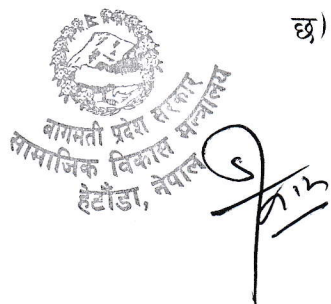 छ।
बागमती प्रदेश सरकार
सामाजिक विकास मन्त्रालय
हेटौंडा, नेपाल